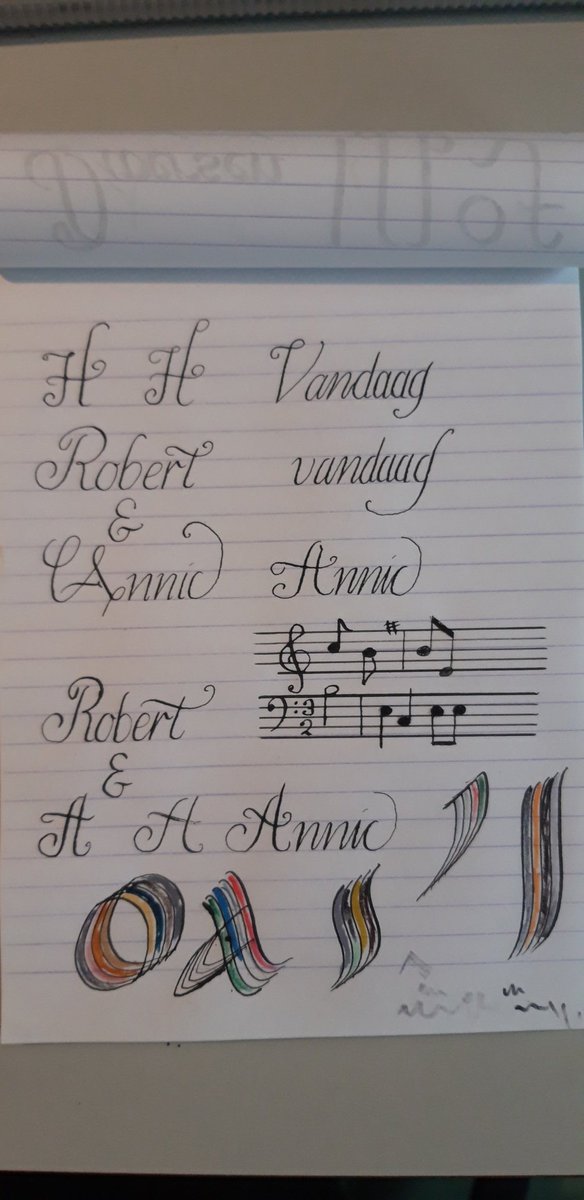 H H Vandaag
Robert vandaag
&
Annic Annic
3
2
Robert
&
A A Annic